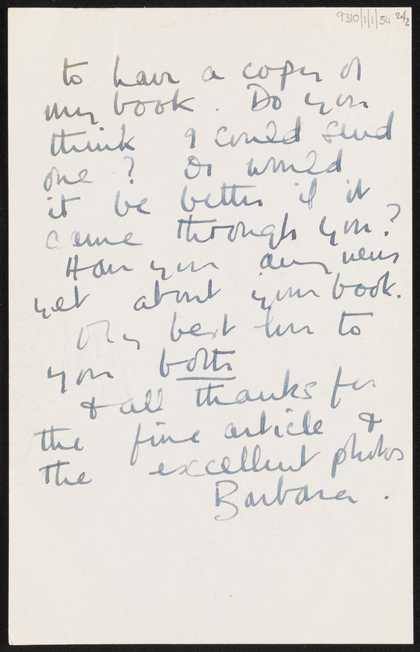 9310/1/1/54 2/2
to have a copy of
my book. Do you
think I could send
one? Or would
it be better if it
came through you?
Have you any news
yet about your book.
My best love to
you both
& all thanks for
the fine article &
the excellent photos
Barbara.